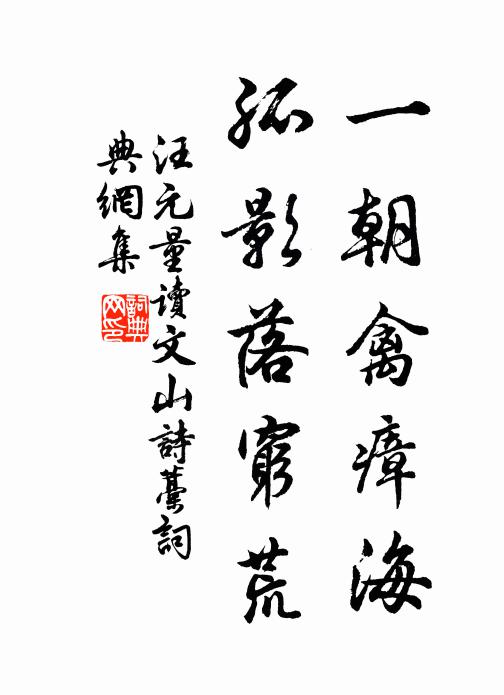 一朝禽瘴海
孤影落窮荒
汪元量讀文山詩藁詞
典網集
詞典網印